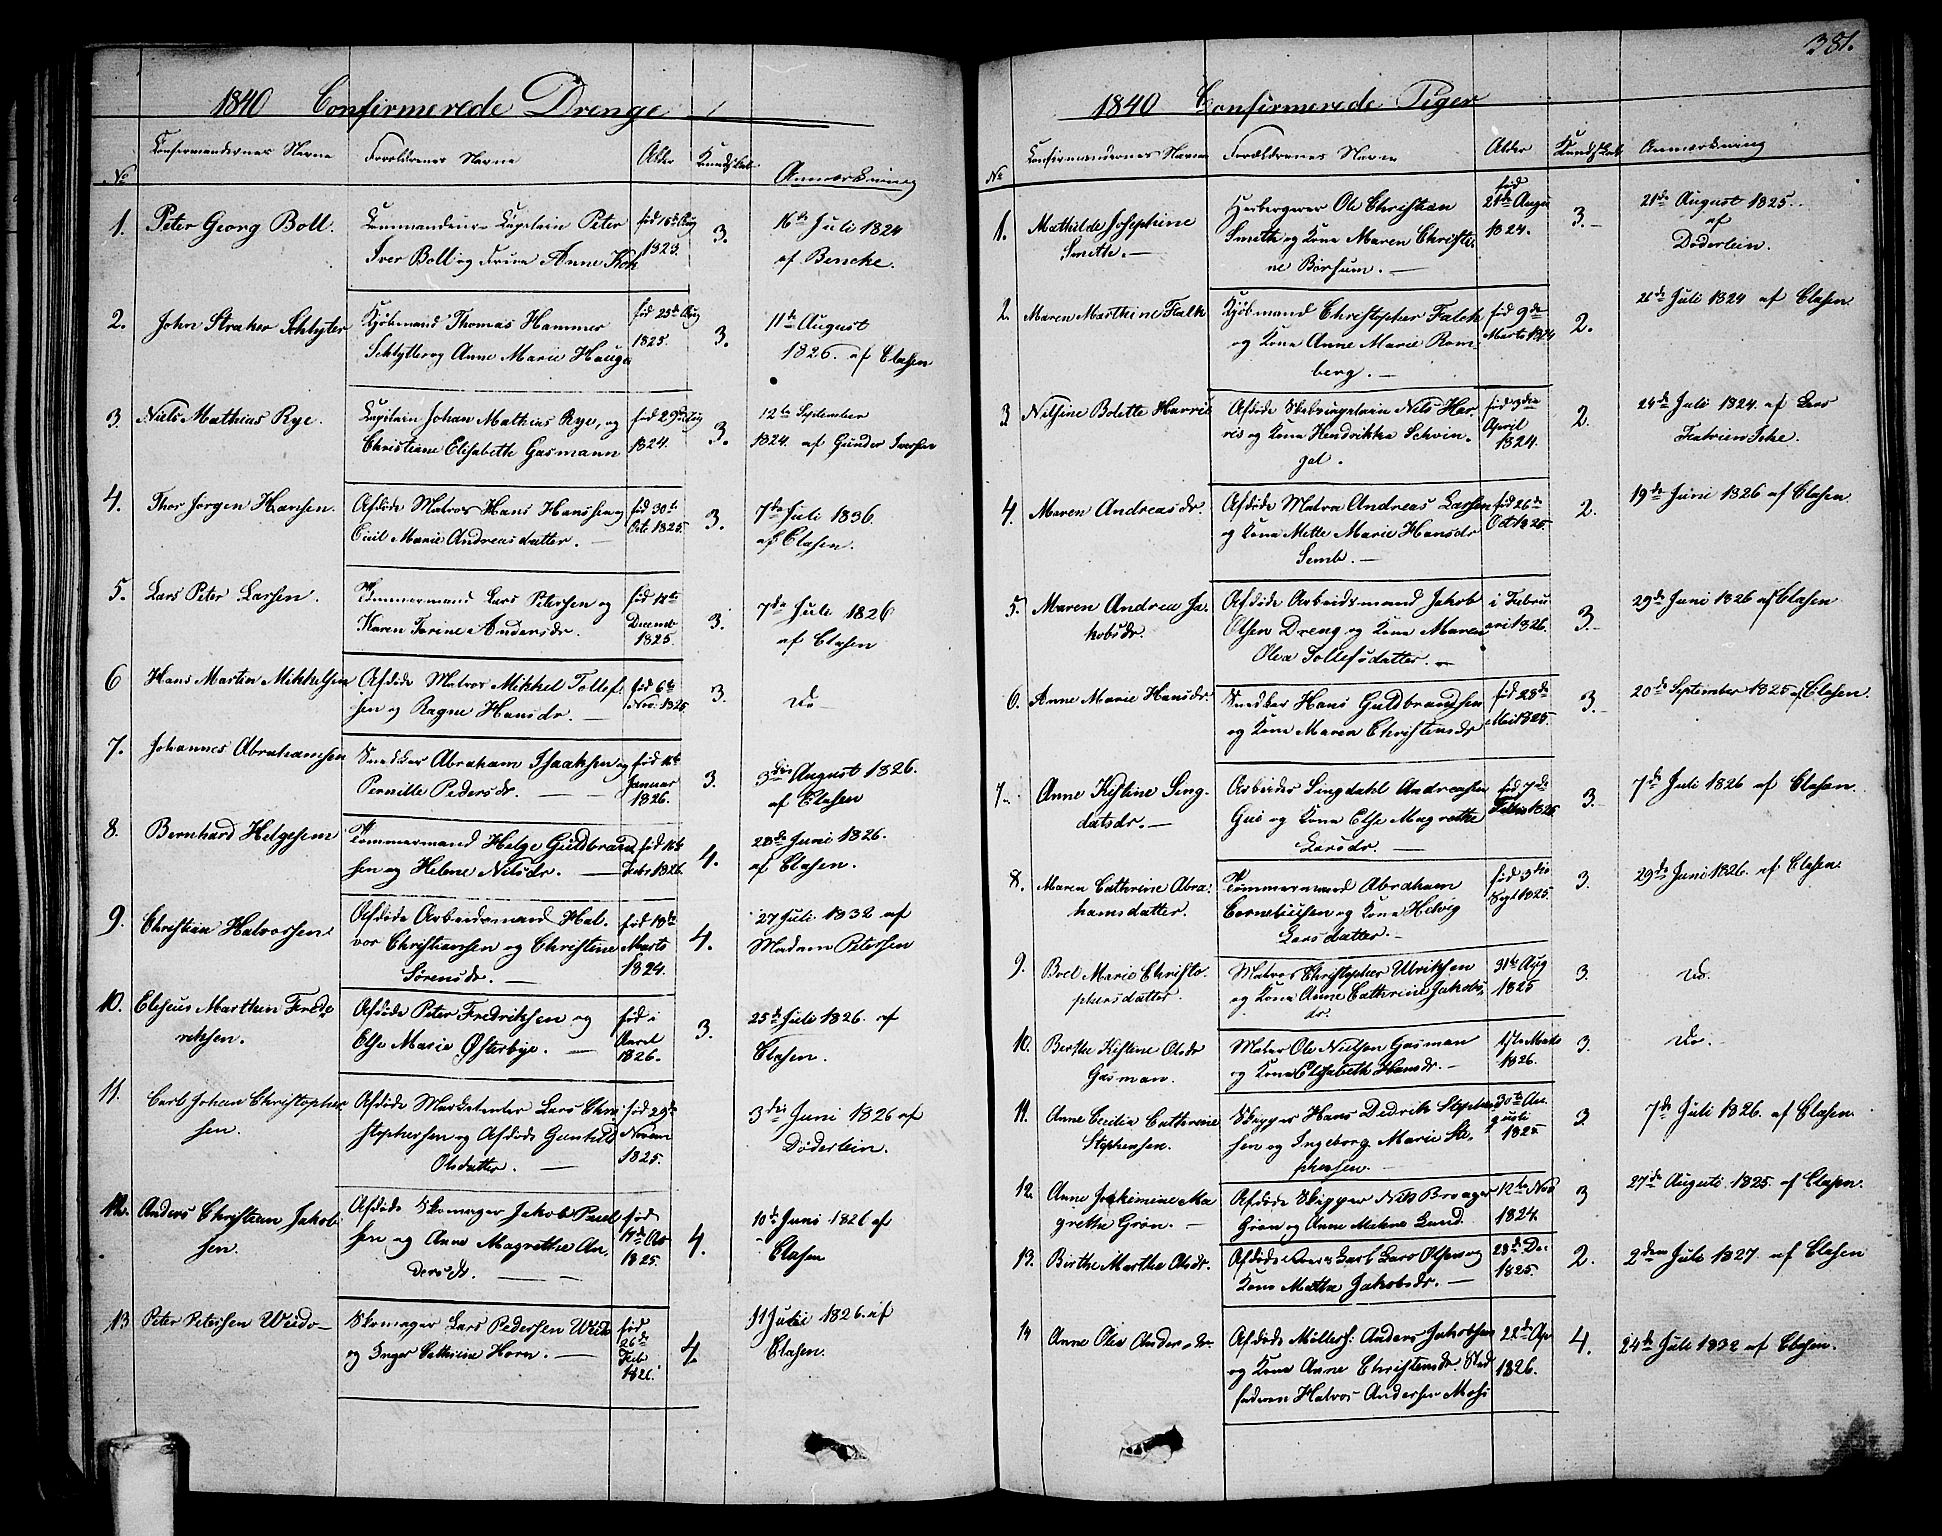 1840 Confirmerede Drenge
No
Confirmandernes Navne
Forældrenes Navne
Alder
Kundskab
Anmærkning
1. Peter Georg Boll.
Commandeur Capitain Peter
Iver Boll og Frue Anne Koh
fød 15de Aug
1823.
3.
16de Juli 1824
af Bencke.
2. John Straker Schlyter
Kjøbmand Thomas Hammer
Schlytter og Anne Marie Hauge
fød 25de Aug
1825.
3.
11te August
1826. af Clasen
3. Niels Mathias Rye.
Capitain Johan Mathias Rye, og
Christiane Elisabeth Gasmann
fød 29de Aug
1824.
3.
12te September
1824. af Gunder Iversen
4. Thor Jørgen Hansen.
Afdøde Matros Hans Hansen og
Marie Andreasdatter.
fød 30te
Oct 1825.
3.
7de Juli 1836.
af Clasen.
5. Lars Peter Larsen.
Tømmermand Lars Petersen og
Karen Torine Andersdr.
fød
Decemb
1825.
3.
7de Juli 1826
af Clasen
6 Hans Martin Mikkelsen
Afdøde Matros Mikkel Tollef-
sen og Ragne Hansdr.
fød 6te
Nov. 1825
3.
Do
7. Johannes Abrahamsen
Snedker Abraham Isaaksen og
Pernille Pedersdr.
fød
Januar
1826.
3.
3die August 1826.
af Clasen
8. Bernhard Helgesen
Tømmermand Helge Guldbrand
sen og Helene Nilsdr.
fød
Febr 1826.
4.
28de Juni 1826.
af Clasen.
9. Christian Halvorsen
Afdøde Arbeidsmand Hal-
vor Christiansen og Christine
Sørensdr.
fød 19de
Marts
1824.
4.
27 Juli 1832 af
Madam Petersen
10. Eliseus Marthin Fred-
riksen.
Afdøde Peter Fredriksen og
Else Marie Østerbye.
fød i
April
1826.
3.
25de Juli 1826. af
Clasen.
11. Carl Johan Christopher
sen.
Afdøde Marketenter Lars Chri
stophersen og Afdøde Gunhild
Olsdatter.
fød 29de
Novem
1825.
3die Juni 1826 af
Døderlein.
12. Anders Christian Jakob
sen.
Afdøde Skomager Jakob Paul
sen og Anne Magrethe An-
dersdr.
fød
1825.
4.
10de Juni 1826 af
Clasen
13 Peter Petersen
Skomager Lars Pedersen
og Inger Cathrine Horn.
fød
26de
Feb
4.
11 Julii 1826. af
Clasen.
381.
1840 Confirmerede Piger
No
Confirmandernes Navne
Forældrenes Navne
Alder
Kundskab
Anmærkning
1. Mathilde Josephine
Smith.
Herbergerer Ole Christian
Smith og Kone Maren Christi-
ne Børsum.
fød
21de Augu
1824.
3.
21de August 1825.
af
Døderlein.
2. Maren Marthine Falk
Kjøbmand Christopher Falck
og Kone Anne Marie Rom-
berg.
fød 9de
Marts 1824
2.
26de Juli 1824 af Clasen
3 Nilsine Bolette Harris
Afdøde Skibscapitain Nils Har-
ris og Kone Hendrikke Schvin-
gel.
fød
April
1824.
2.
24de Juli 1824. af Lars
4. Maren Andreasdr.
Afdøde Matros Andreas Larsen
og Kone Mette Marie Hansdr
Semb.
fød 26de
Oct 1825.
2.
19de Juni 1826 af Clasen
5. Maren Andrea Ja-
kobsdr.
Afdøde Arbeidsmand Jakob
Olsen Dreng og Kone Maren
Olea Tollefsdatter.
i Febru
ari 1826.
3.
29de Juni 1826 af Clasen
6. Anne Marie Hansdr.
Snedker Hans Guldbrandsen
og Kone Maren Christensdr
fød 28de
Mai 1825.
3.
20de September 1825 af Clasen.
7. Anne Kistine Sing-
dalsdr.
Arbeider Singdahl Andreasen
Gui og Kone Else Magrethe
Larsdr.
fød 7de
Febr 1826
3.
7de Juli 1826 af Clasen.
8. Maren Cathrine Abra-
hamsdatter.
Tømmermand Abraham
Corneliusen og Kone Helvig
Larsdatter.
fød 3die
Sept 1825.
3.
29de Juni 1826. af Clasen.
9. Boel Marie Christo-
phersdatter.
Matros Christopher Ulriksen
og Kone Anne Cathrine Jakobs-
dr.
31te Aug
1825
3.
Do.
10. Berthe Kistine Olsdr
Gasman.
Matros Ole Nielsen Gasman
og Kone Elisabeth Hansdr.
1ste Marts
1826.
3.
Do.
11. Anne Cecilia Cathrine
Stephensen.
Skipper Hans Didrik Stephen
sen og Ingeborg Marie Ste-
phensen.
30te Au-
gusti
1825
3.
7de Juli 1826. af Clasen.
12. Anne Jokimine Ma
grethe Grøn.
Afdøde Skipper Nils Broager
Grøn og Anne Malene Lund.
12te Nov
1824.
3
27de Augusti 1825 af Clasen.
13. Birthe Marthe Olsdr.
Afdøde Lars Olsen og
Kone Marthe Jakobsdr.
28de De-
1825.
2.
2den Juli 1827. af Clasen
14 Anne Olea Andersdr.
Afdøde Møllers: Anders Jakobsen
og Kone Anne Christensdr. Sted
faderen Halvor Andersen Moss
22de Apr
1826.
4.
24de Juli 1832 af Clasen.